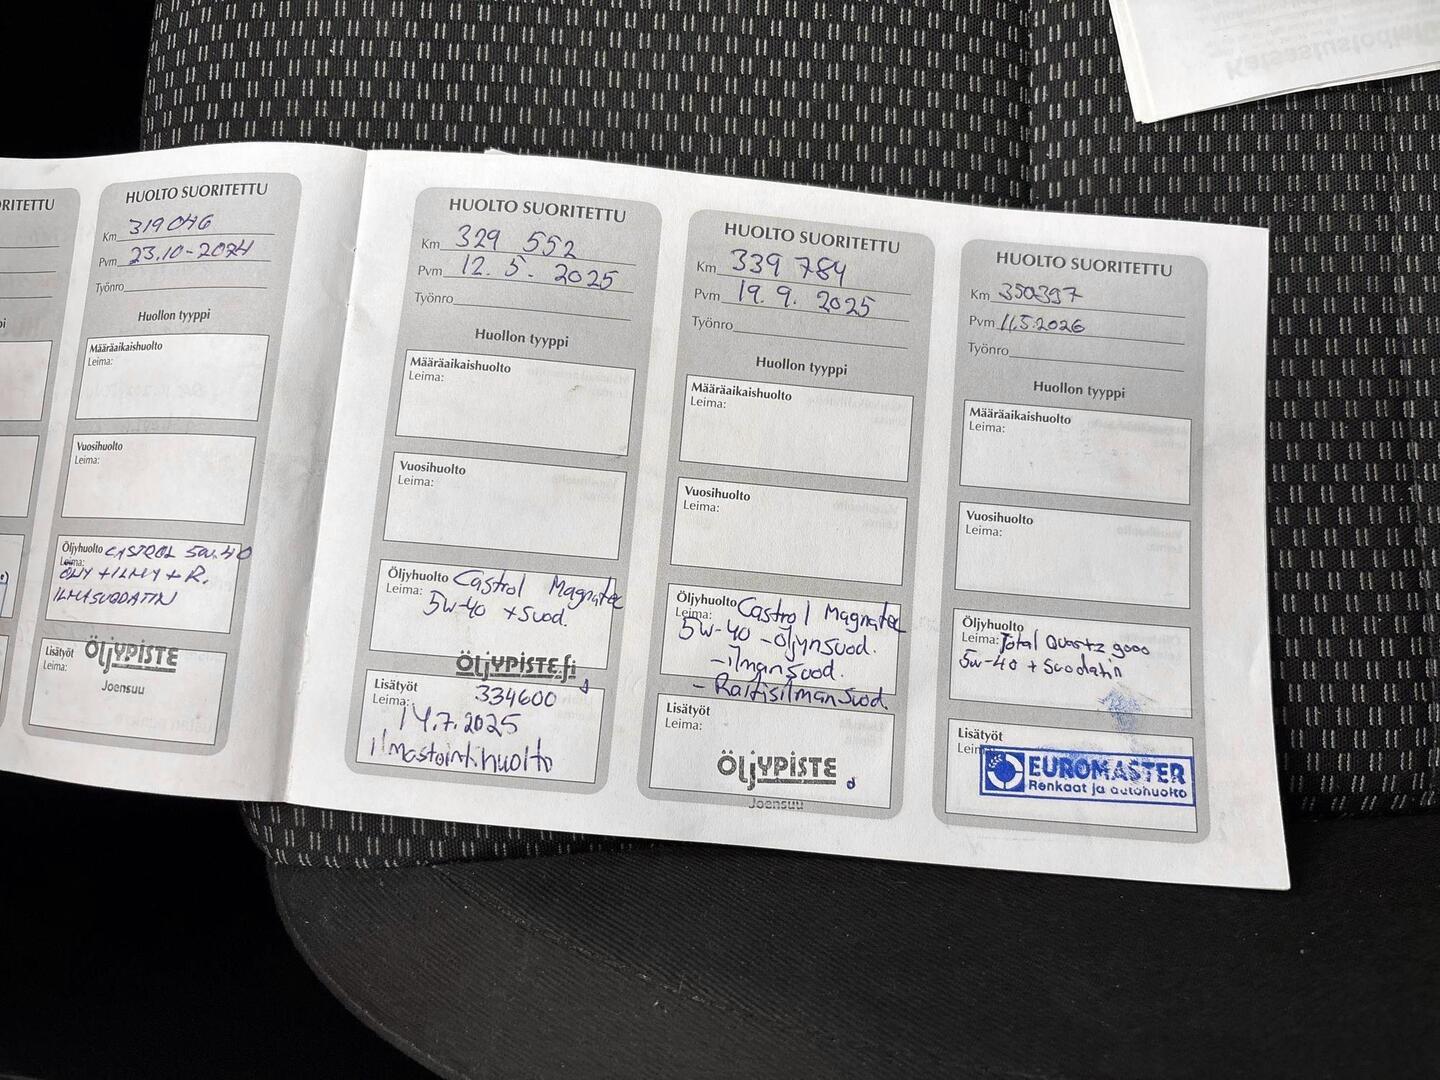 Katsastustodistus
ORITETTU
pi
HUOLTO SUORITETTU
Km 319046
Pvm 23.10-2024
Työnro
Huollon tyyppi
Määräaikaishuolto
Leima:
Vuosihuolto
Leima:
Öljyhuolto CASTROL 5W-40
Leima: ÖLJY + ILMA + R.
ILMASUODATIN
Lisätyöt ÖLJYPISTE
Leima: Joensuu
HUOLTO SUORITETTU
Km 329 552
Pvm 12. 5. 2025
Työnro
Huollon tyyppi
Määräaikaishuolto
Leima:
Vuosihuolto
Leima:
Öljyhuolto Castrol Magnatec
Leima: 5W-40 + suod.
ÖLJYPISTE.fi
Lisätyöt 334600
Leima: 14.7.2025
ilmastoint.huolto
HUOLTO SUORITETTU
Km 339 784
Pvm 19. 9. 2025
Työnro
Huollon tyyppi
Määräaikaishuolto
Leima:
Vuosihuolto
Leima:
Öljyhuolto Castrol Magnatec
Leima: 5W-40 - öljynsuod.
- ilmansuod.
- Raitisilmansuod.
Lisätyöt
Leima:
ÖLJYPISTE
Joensuu
HUOLTO SUORITETTU
Km 350397
Pvm 11.5.2026
Työnro
Huollon tyyppi
Määräaikaishuolto
Leima:
Vuosihuolto
Leima:
Öljyhuolto
Leima: Total Quartz 9000
5w-40 + suodatin
Lisätyöt
Leim
EUROMASTER
Renkaat ja autohuolto